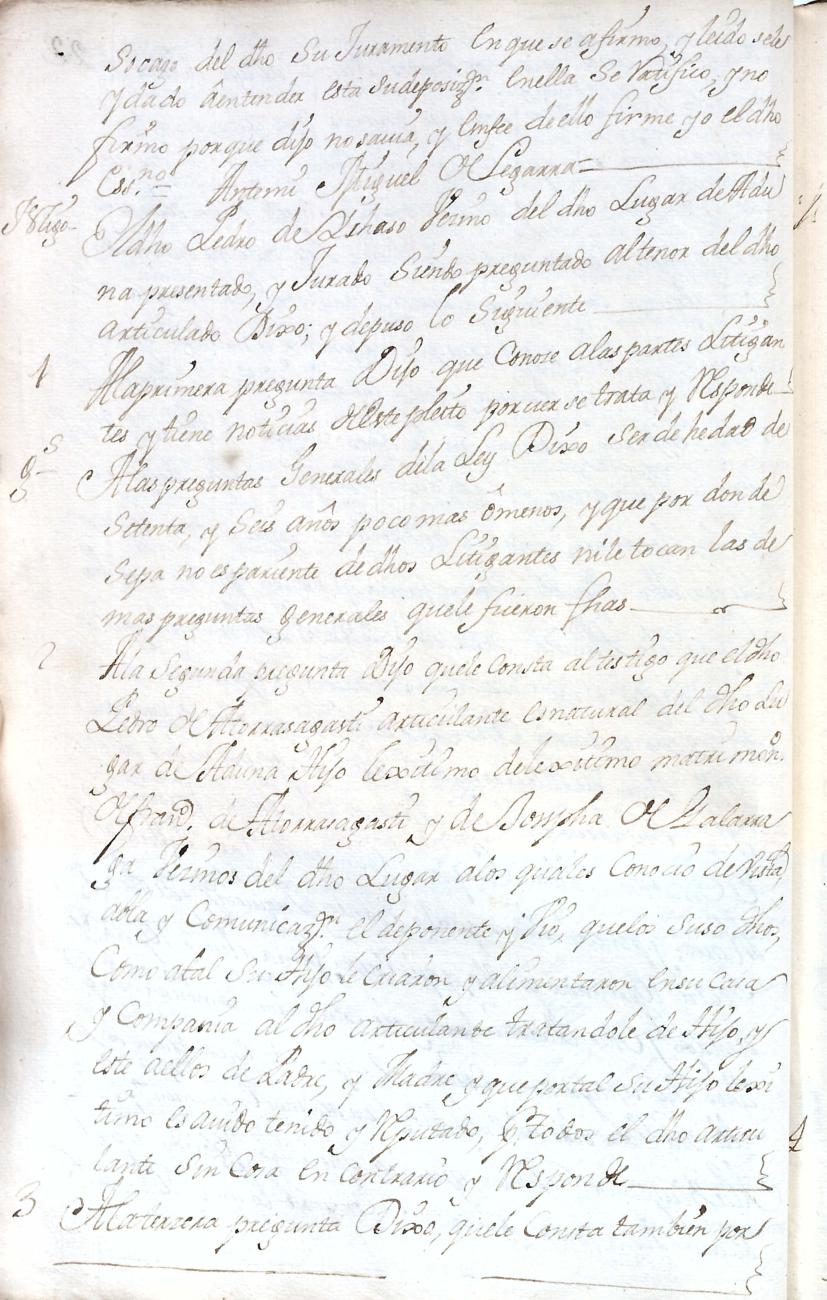 so cargo del dho Su Juramento En que se afirmo, y leido sele
y dado aentender esta su deposizon. Enella Se Ratifico, y no
firmo porque dijo no savia, y Enfee de ello firme yo el dho
Ess.no = Antemi Miguel de Legarra =
Testigo
El dho Pedro de Lihaso Vezino del dho Lugar de Adu
na presentado, y Jurado Siendo preguntado altenor del dho
articulado Dixo; y depuso lo Siguiente
1
Alaprimera pregunta Dijo que Conoce alas partes Litigan
tes y tiene noticias deeste pleito por ver se trata y Responde
g.s
Alas preguntas Generales dela Ley Dixo ser de hedad de
Setenta, y Seis años poco mas ômenos, y que por donde
Sepa no es pariente de dhos Litigantes nile tocan las de
mas preguntas generales quele fueron fhas
2
Ala Segunda pregunta Dijo quele Consta altestigo que el dho
Pedro de Atorrasagasti articulante es natural del dho Lu
gar de Aduna Hijo lexitimo delexitimo matrimono.
de Franco. de Atorrasagasti y de Josepha de Galarra
ga Vezinos del dho Lugar alos quales Conocio de Vista,
abla y Comunicazon. el deponente y vio, quelos suso dhos,
Como atal Su Hijo le Criaron y alimentaron ensu Casa
y Compania al dho articulante tratandole de Hijo, y
este aellos de Padre, y Madre y que portal Su Hijo lexi
timo es avido tenido y Reputado, por todos el dho articu
lante Sin Cosa En Contrario y Responde
3
Alaterzera pregunta Dixo, quele Consta tambien por